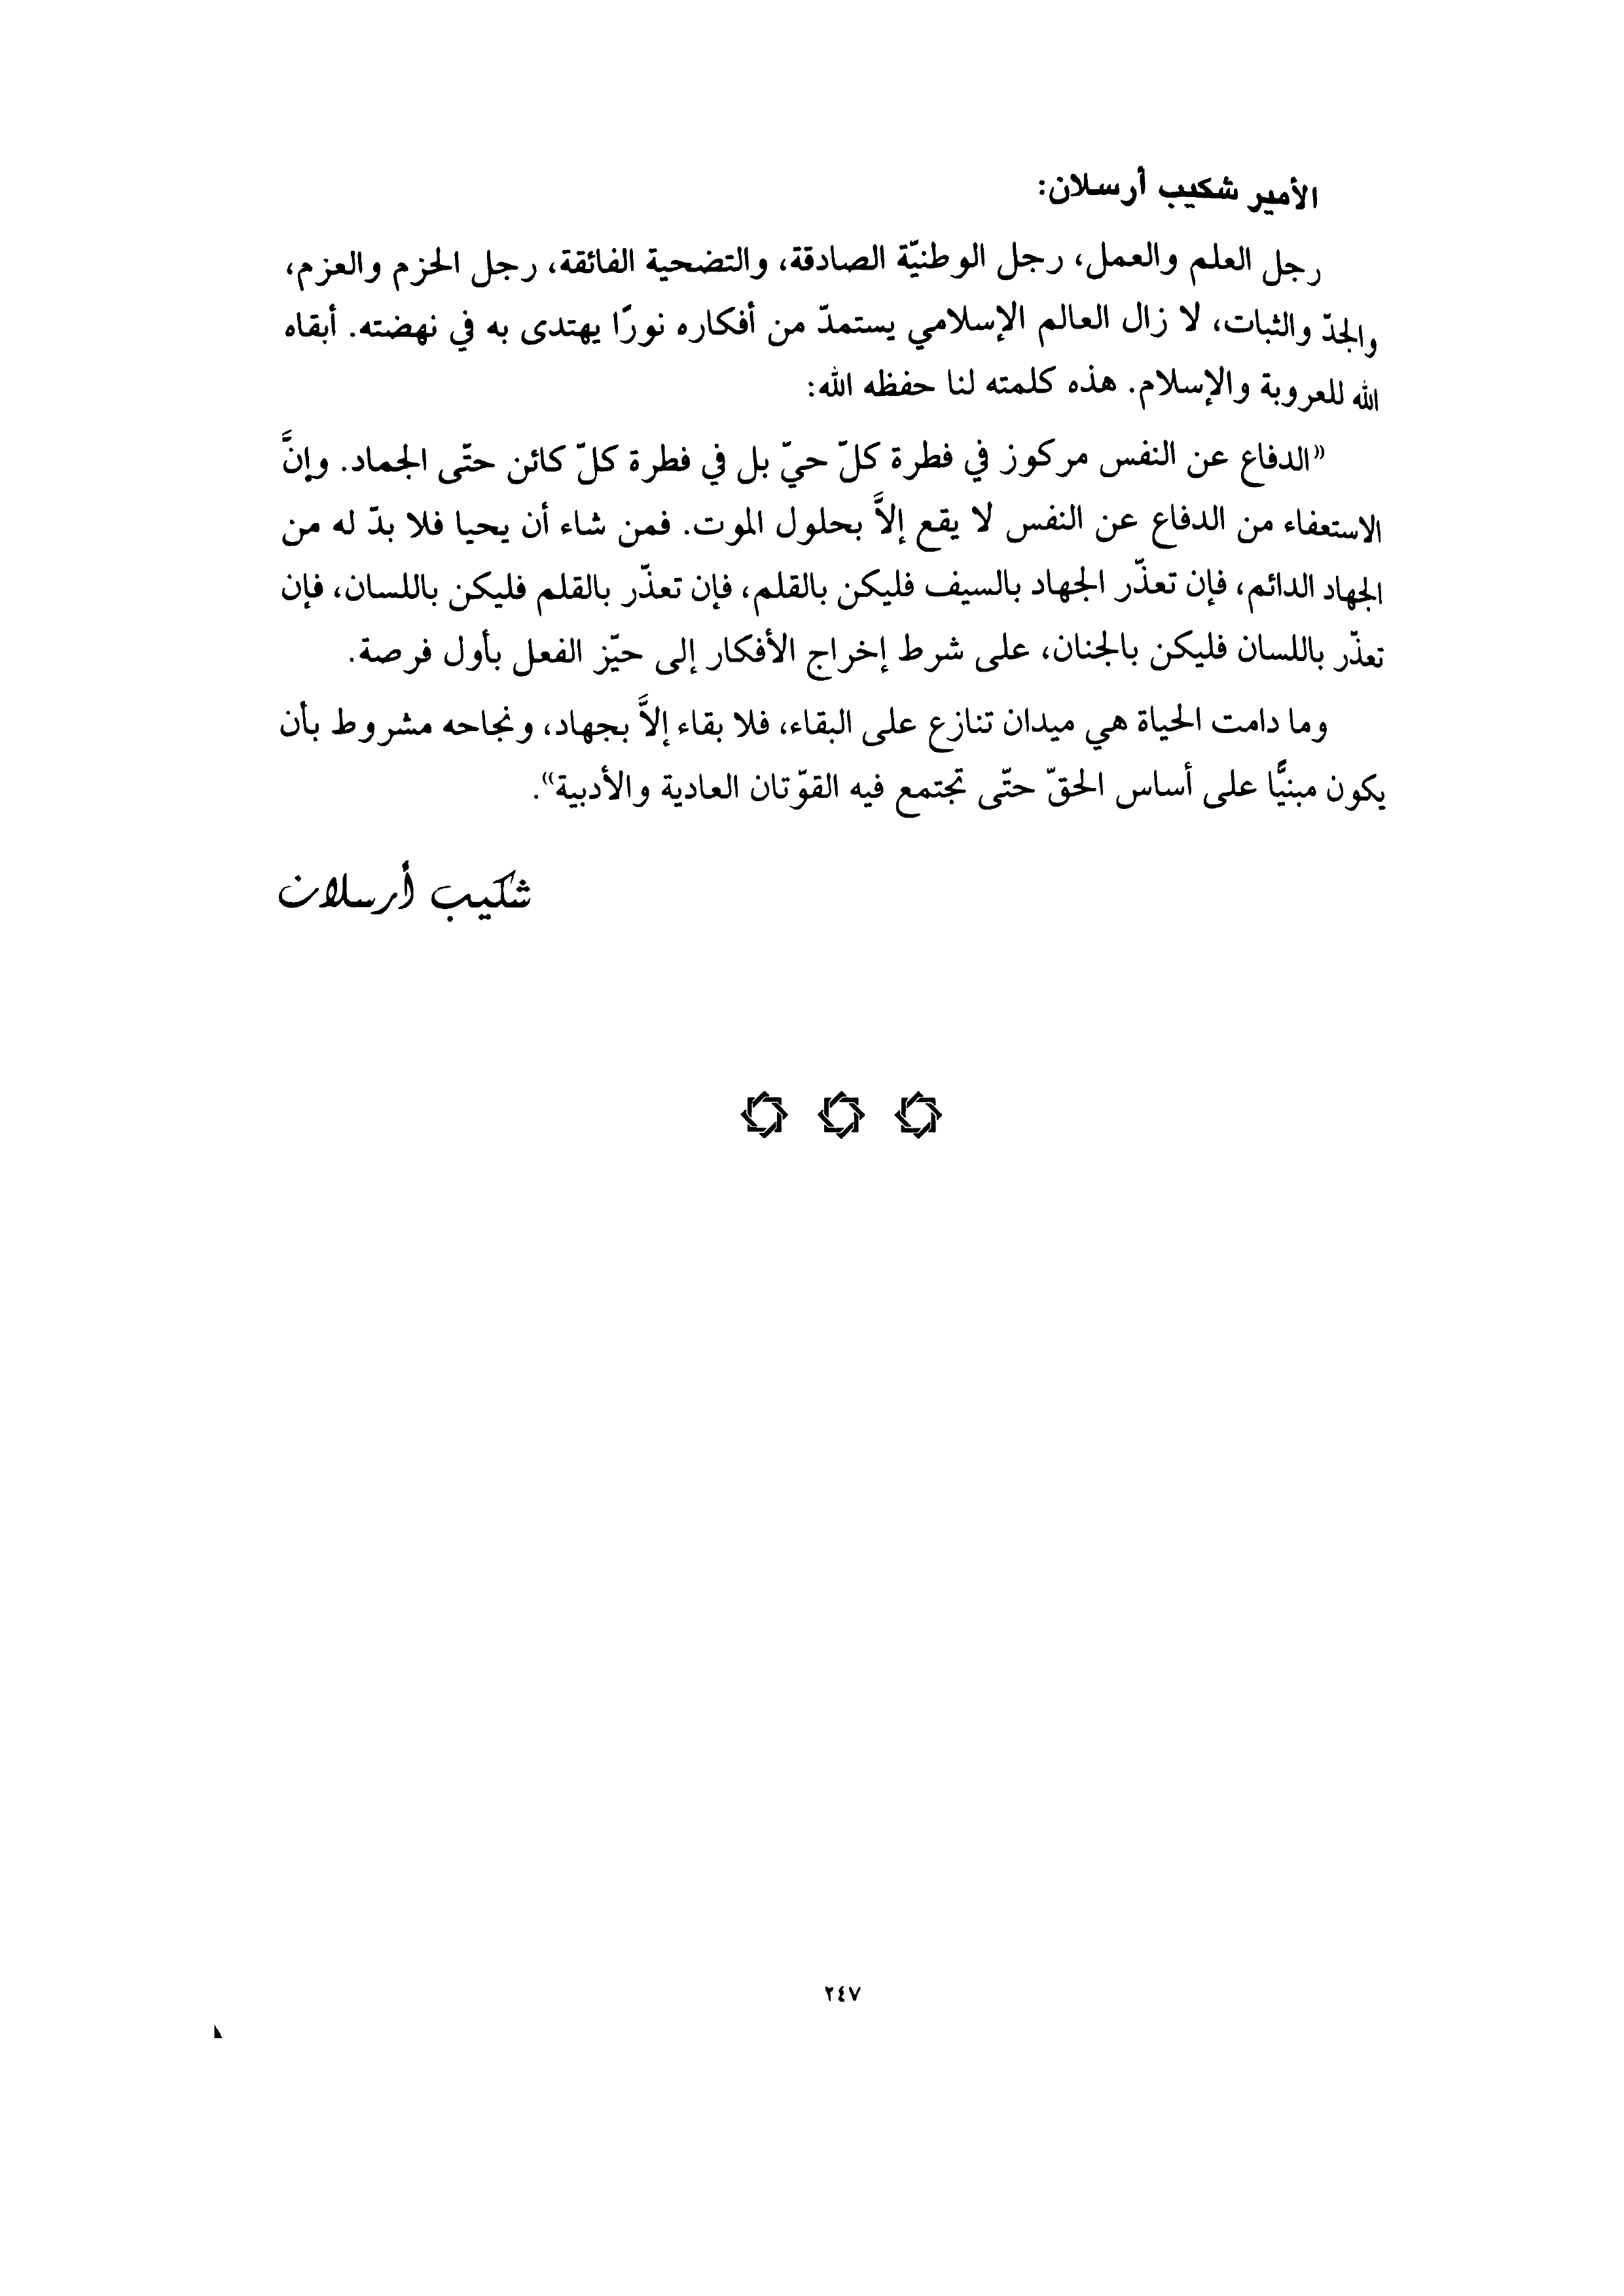 الأمير شكيب أرسلان:
رجل العلم والعمل، رجل الوطنيّة الصادقة، والتضحية الفائقة، رجل الحزم والعزم،
والجدّ والثبات، لا زال العالم الإسلامي يستمدّ من أفكاره نورًا يهتدى به في نهضته. أبقاه
الله للعروبة والإسلام. هذه كلمته لنا حفظه الله:
«الدفاع عن النفس مركوز في فطرة كلّ حيّ بل في فطرة كلّ كائن حتّى الجماد. وإنَّ
الاستعفاء من الدفاع عن النفس لا يقع إلاَّ بحلول الموت. فمن شاء أن يحيا فلا بدّ له من
الجهاد الدائم، فإن تعذّر الجهاد بالسيف فليكن بالقلم، فإن تعذّر بالقلم فليكن باللسان، فإن
تعذّر باللسان فليكن بالجنان، على شرط إخراج الأفكار إلى حيّز الفعل بأول فرصة.
وما دامت الحياة هي ميدان تنازع على البقاء، فلا بقاء إلاَّ بجهاد، ونجاحه مشروط بأن
يكون مبنيًّا على أساس الحقّ حتّى تجتمع فيه القوّتان العادية والأدبية».
شكيب أرسلان
٢٤٧